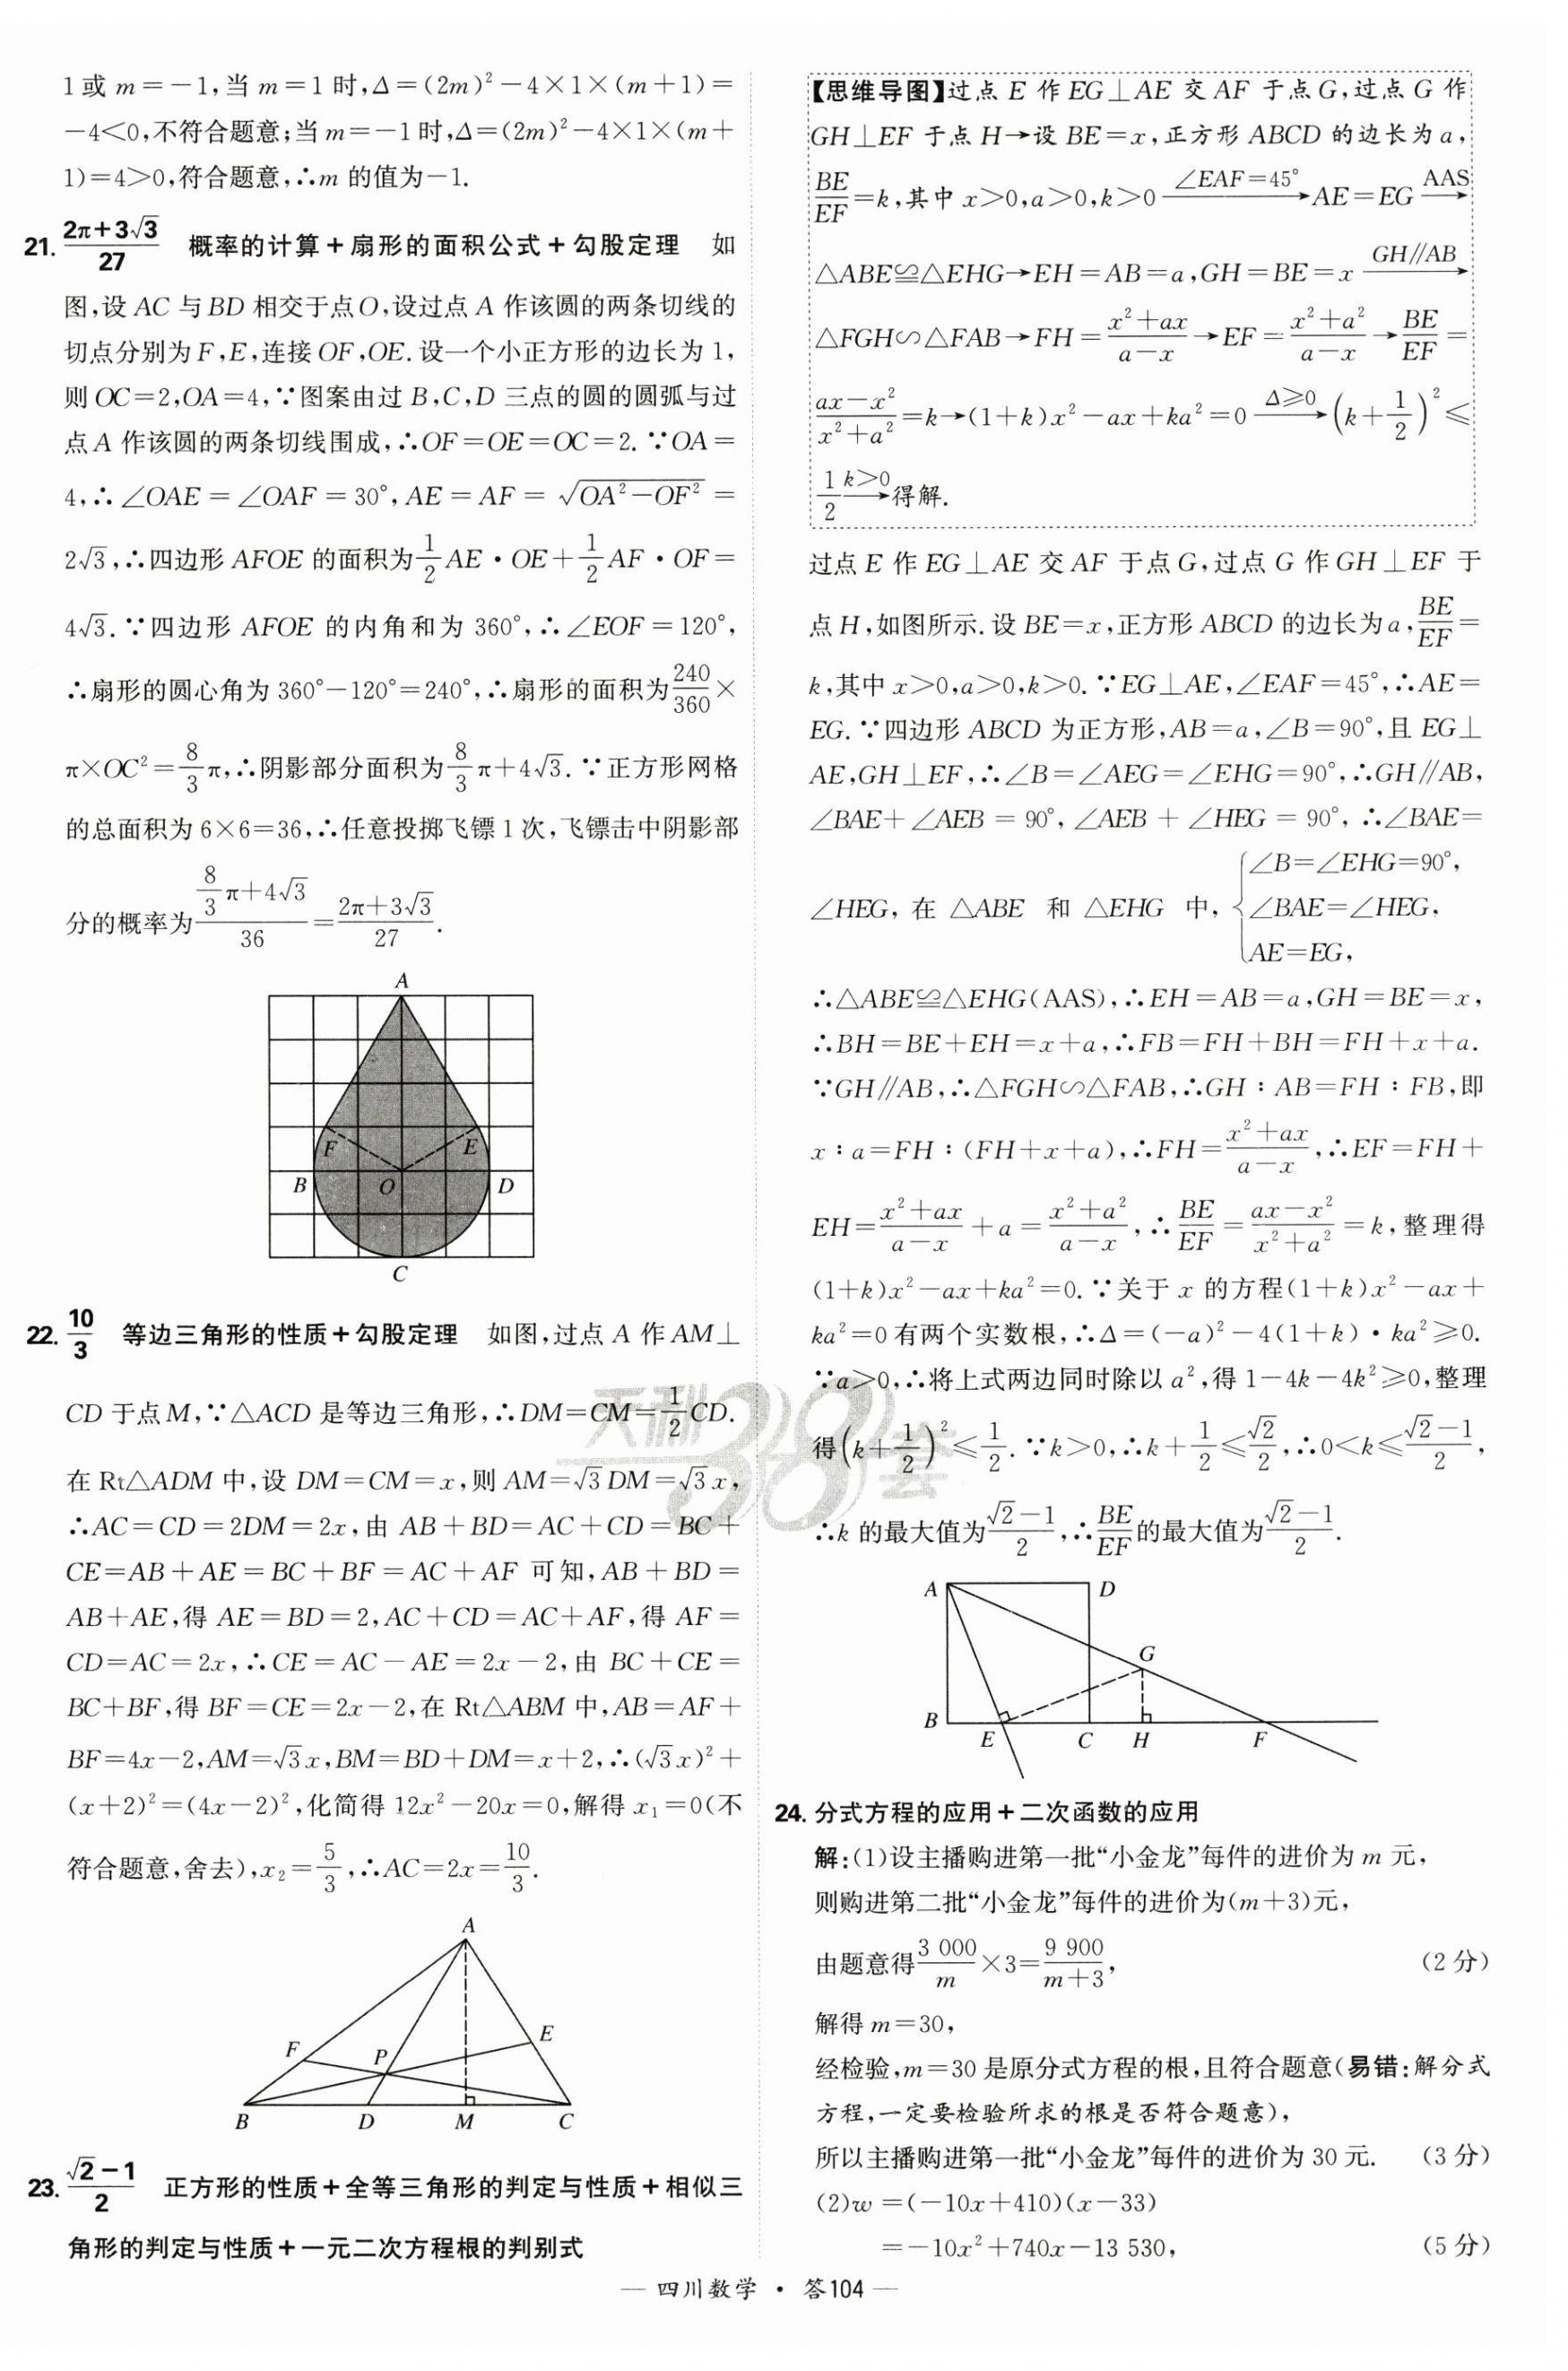 1或 m=-1,当 m=1 时,Δ=(2m)²-4×1×(m+1)=
-4<0,不符合题意;当m=-1时,Δ=(2m)²-4×1×(m+
1)=4>0,符合题意,∴m 的值为-1.
21. (2π+3√3)/27 概率的计算+扇形的面积公式+勾股定理 如
图,设 AC 与BD 相交于点O,设过点 A 作该圆的两条切线的
切点分别为F,E,连接 OF,OE.设一个小正方形的边长为 1,
则OC=2,OA=4,∵图案由过 B,C,D 三点的圆的圆弧与过
点A 作该圆的两条切线围成,∴OF=OE=OC=2.∵OA=
4,∴∠OAE=∠OAF=30°,AE=AF=√(OA²-OF²)=
2√3,∴四边形 AFOE 的面积为1/2 AE·OE+1/2 AF·OF=
4√3.∵四边形 AFOE 的内角和为 360°,∴∠EOF=120°,
∴扇形的圆心角为 360°-120°=240°,∴扇形的面积为240/360×
π×OC²=8/3π,∴阴影部分面积为8/3π+4√3.∵正方形网格
的总面积为 6×6=36,∴任意投掷飞镖1次,飞镖击中阴影部
分的概率为(8/3π+4√3)/36=(2π+3√3)/27.
A
F
E
B
O
D
C
22. 10/3 等边三角形的性质+勾股定理 如图,过点 A 作 AM⊥
CD 于点M,∵△ACD 是等边三角形,∴DM=CM=1/2CD.
在 Rt△ADM 中,设 DM=CM=x,则 AM=√3DM=√3x,
∴AC=CD=2DM=2x,由 AB+BD=AC+CD=BC+
CE=AB+AE=BC+BF=AC+AF 可知,AB+BD=
AB+AE,得 AE=BD=2,AC+CD=AC+AF,得 AF=
CD=AC=2x,∴CE=AC-AE=2x-2,由 BC+CE=
BC+BF,得 BF=CE=2x-2,在 Rt△ABM 中,AB=AF+
BF=4x-2,AM=√3x,BM=BD+DM=x+2,∴(√3x)²+
(x+2)²=(4x-2)²,化简得 12x²-20x=0,解得 x₁=0(不
符合题意,舍去),x₂=5/3,∴AC=2x=10/3.
A
F
P
E
B
D
M
C
23. (√2-1)/2 正方形的性质+全等三角形的判定与性质+相似三
角形的判定与性质+一元二次方程根的判别式
【思维导图】过点 E 作 EG⊥AE 交 AF 于点G,过点 G 作
GH⊥EF 于点 H→设 BE=x,正方形 ABCD 的边长为 a,
BE/EF=k,其中 x>0,a>0,k>0 ∠EAF=45°→AE=EG AAS→
△ABE≌△EHG→EH=AB=a,GH=BE=x GH∥AB→
△FGH∽△FAB→FH=(x²+ax)/(a-x)→EF=(x²+a²)/(a-x)→BE/EF=
(ax-x²)/(x²+a²)=k→(1+k)x²-ax+ka²=0 Δ≥0→(k+1/2)²≤
1/2 k>0→得解.
过点 E 作 EG⊥AE 交 AF 于点G,过点 G 作GH⊥EF 于
点 H,如图所示.设 BE=x,正方形 ABCD 的边长为a,BE/EF=
k,其中 x>0,a>0,k>0.∵EG⊥AE,∠EAF=45°,∴AE=
EG.∵四边形 ABCD 为正方形,AB=a,∠B=90°,且 EG⊥
AE,GH⊥EF,∴∠B=∠AEG=∠EHG=90°,∴GH∥AB,
∠BAE+∠AEB=90°,∠AEB+∠HEG=90°,∴∠BAE=
∠HEG,在 △ABE 和 △EHG 中,{∠B=∠EHG=90°,
∠BAE=∠HEG,
AE=EG,
∴△ABE≌△EHG(AAS),∴EH=AB=a,GH=BE=x,
∴BH=BE+EH=x+a,∴FB=FH+BH=FH+x+a.
∵GH∥AB,∴△FGH∽△FAB,∴GH:AB=FH:FB,即
x:a=FH:(FH+x+a),∴FH=(x²+ax)/(a-x),∴EF=FH+
EH=(x²+ax)/(a-x)+a=(x²+a²)/(a-x),∴BE/EF=(ax-x²)/(x²+a²)=k,整理得
(1+k)x²-ax+ka²=0.∵关于 x 的方程(1+k)x²-ax+
ka²=0有两个实数根,∴Δ=(-a)²-4(1+k)·ka²≥0.
∵a>0,∴将上式两边同时除以 a²,得 1-4k-4k²≥0,整理
得(k+1/2)²≤1/2.∵k>0,∴k+1/2≤√2/2,∴0<k≤(√2-1)/2,
∴k 的最大值为(√2-1)/2,∴BE/EF的最大值为(√2-1)/2.
A
D
G
B
E
C
H
F
24. 分式方程的应用+二次函数的应用
解:(1)设主播购进第一批“小金龙”每件的进价为 m 元,
则购进第二批“小金龙”每件的进价为(m+3)元,
由题意得3 000/m×3=9 900/(m+3), (2分)
解得 m=30,
经检验,m=30 是原分式方程的根,且符合题意(易错:解分式
方程,一定要检验所求的根是否符合题意),
所以主播购进第一批“小金龙”每件的进价为 30 元. (3分)
(2)w=(-10x+410)(x-33)
=-10x²+740x-13 530, (5分)
天利38套
— 四川数学·答104 —